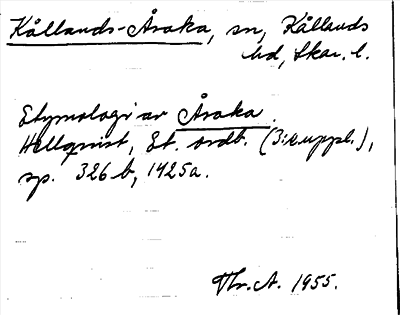 Kållands-Åsaka, sn, Kållands
hd, Skar. l.
Etymologi av Åsaka.
Hellquist, Et. ordb. (3:e uppl.),
sp. 326 b, 1425a.
Thr. A. 1955.